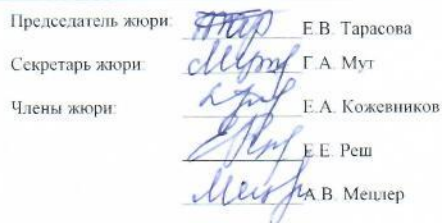 Председатель жюри: Е.В. Тарасова
Секретарь жюри: Г.А. Мут
Члены жюри: Е.А. Кожевников
Е.Е. Реш
А.В. Мецлер